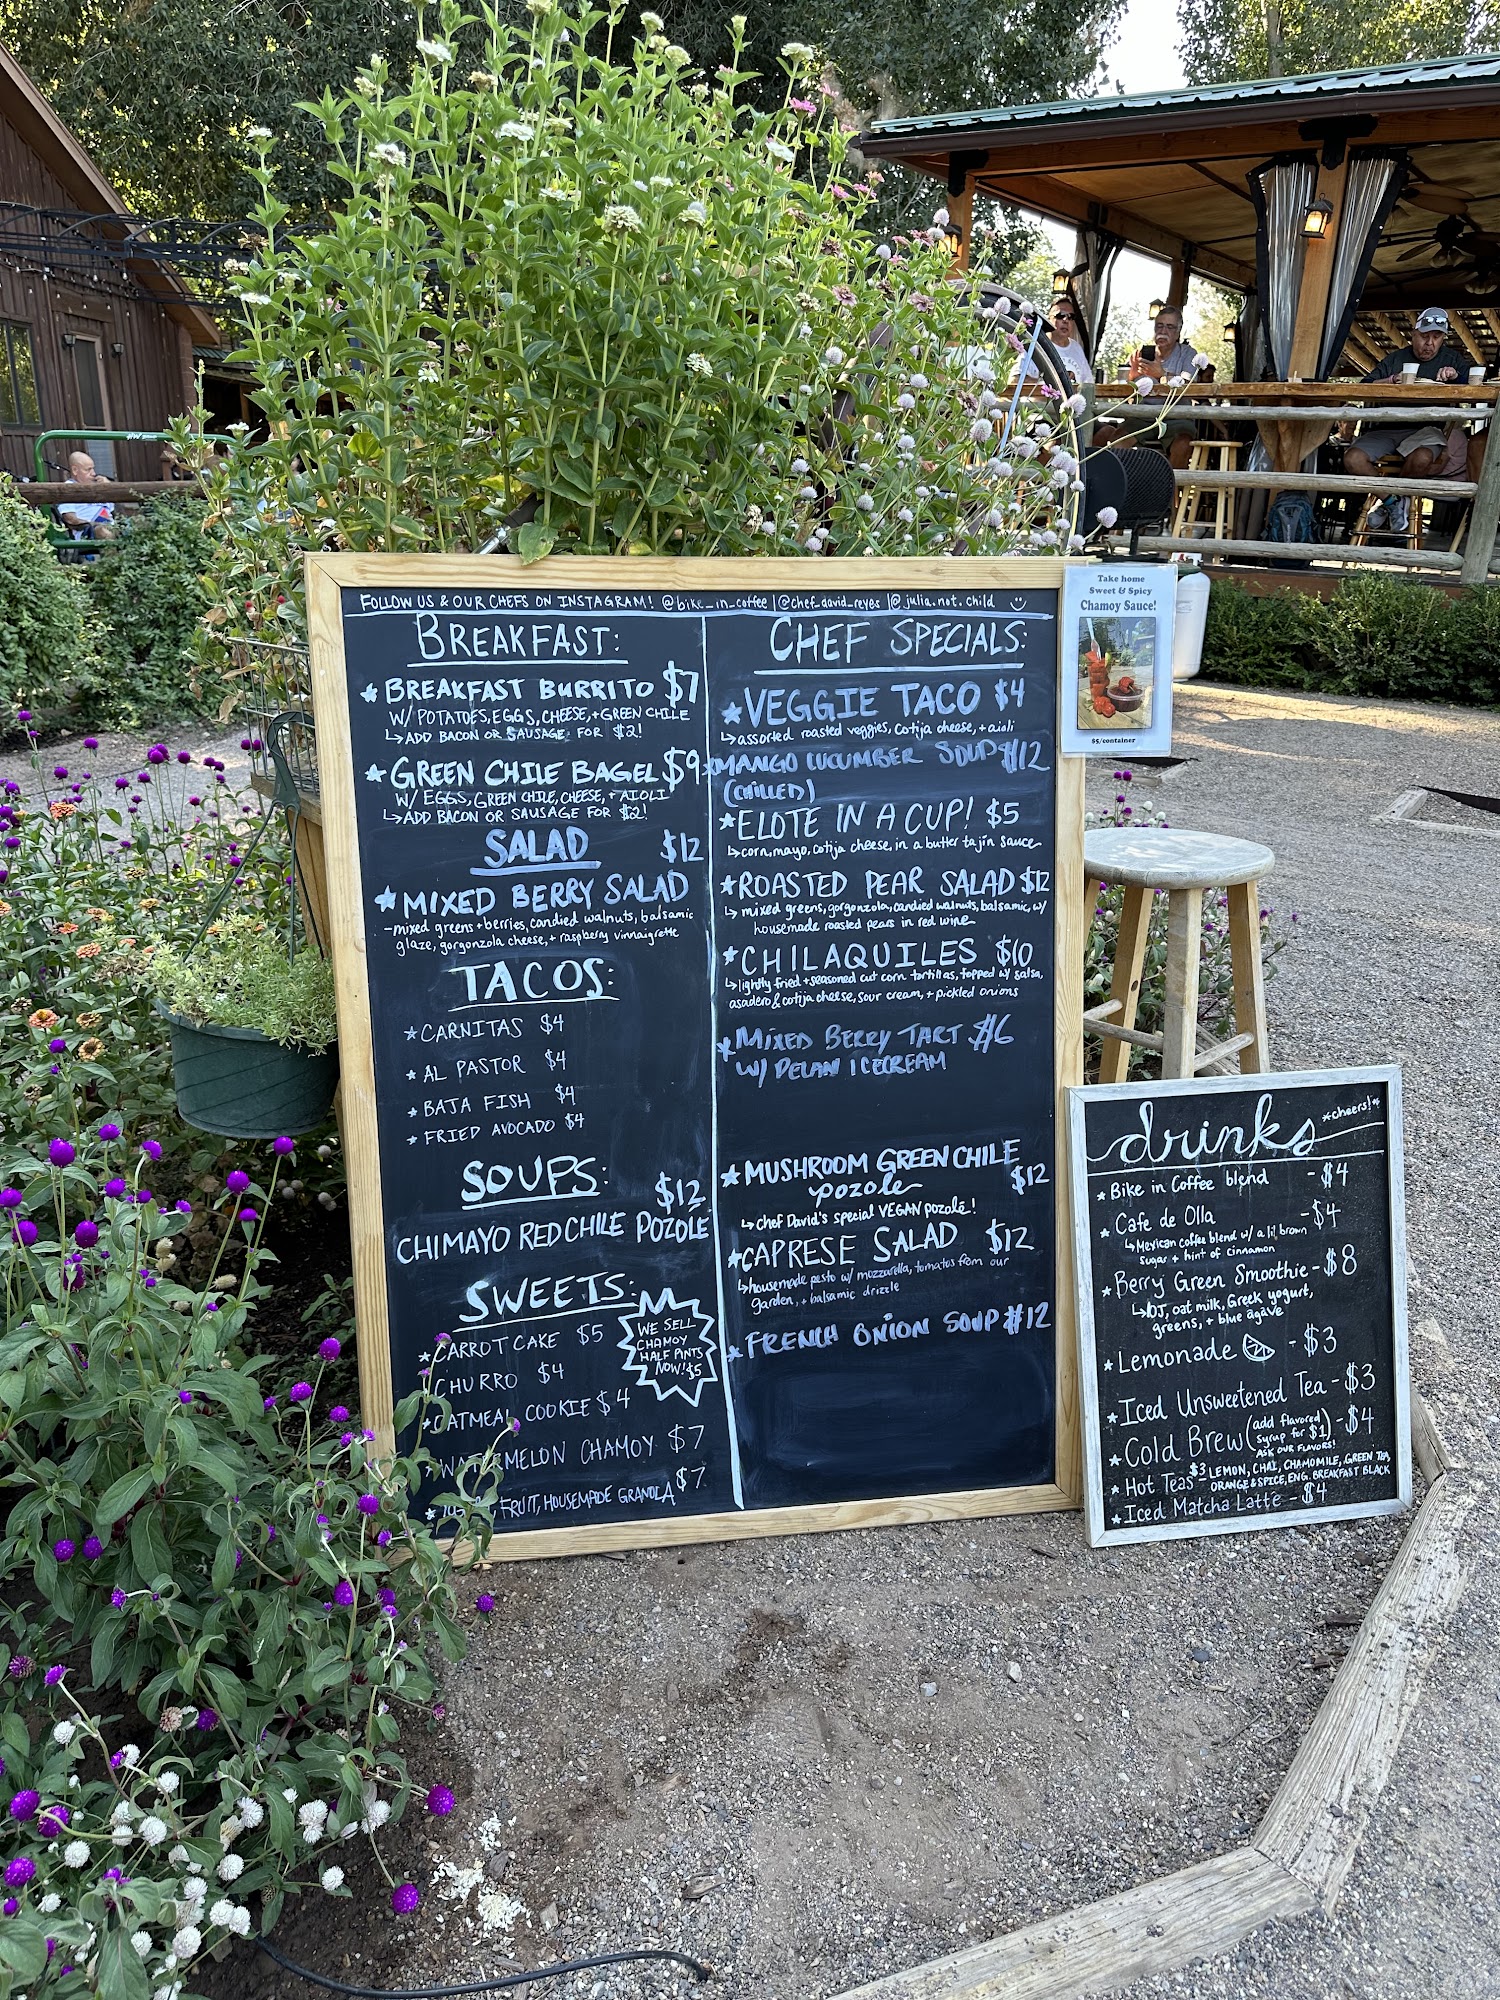 FOLLOW US & OUR CHEFS ON INSTAGRAM! @bike_in_coffee | @chef_david_reyes | @julia.not.child
BREAKFAST:
BREAKFAST BURRITO $7
W/ POTATOES, EGGS, CHEESE, + GREEN CHILE
↳ ADD BACON OR SAUSAGE FOR $2!
GREEN CHILE BAGEL $9
W/ EGGS, GREEN CHILE, CHEESE, + AIOLI
↳ ADD BACON OR SAUSAGE FOR $2!
SALAD $12
MIXED BERRY SALAD
-mixed greens + berries, candied walnuts, balsamic
glaze, gorgonzola cheese, + raspberry vinnaigrette
TACOS:
CARNITAS $4
AL PASTOR $4
BAJA FISH $4
FRIED AVOCADO $4
SOUPS: $12
CHIMAYO RED CHILE POZOLE
SWEETS:
CARROT CAKE $5
CHURRO $4
OATMEAL COOKIE $4
WATERMELON CHAMOY $7
FRUIT, HOUSEMADE GRANOLA $7
WE SELL
CHAMOY
HALF PINTS
NOW! $5
CHEF SPECIALS:
VEGGIE TACO $4
↳ assorted roasted veggies, cotija cheese, + aioli
MANGO CUCUMBER SOUP $12
(CHILLED)
ELOTE IN A CUP! $5
↳ corn, mayo, cotija cheese, in a butter tajin sauce
ROASTED PEAR SALAD $12
↳ mixed greens, gorgonzola, candied walnuts, balsamic, w/
housemade roasted pears in red wine
CHILAQUILES $10
↳ lightly fried + seasoned cut corn tortillas, topped w/ salsa,
asadero & cotija cheese, sour cream, + pickled onions
MIXED BERRY TART $6
W/ PECAN ICECREAM
MUSHROOM GREEN CHILE
pozole $12
↳ chef David's special VEGAN pozole!
CAPRESE SALAD $12
↳ housemade pesto w/ mozzarella, tomatoes from our
garden, + balsamic drizzle
FRENCH ONION SOUP $12
Take home
Sweet & Spicy
Chamoy Sauce!
$5/container
drinks
*cheers!*
Bike in Coffee blend - $4
Cafe de Olla - $4
↳ Mexican coffee blend w/ a lil brown
sugar + hint of cinnamon
Berry Green Smoothie - $8
↳ OJ, oat milk, Greek yogurt,
greens, + blue agave
Lemonade - $3
Iced Unsweetened Tea - $3
Cold Brew (add flavored syrup for $1) - $4
ASK OUR FLAVORS!
Hot Teas $3 LEMON, CHAI, CHAMOMILE, GREEN TEA,
ORANGE & SPICE, ENG. BREAKFAST BLACK
Iced Matcha Latte - $4